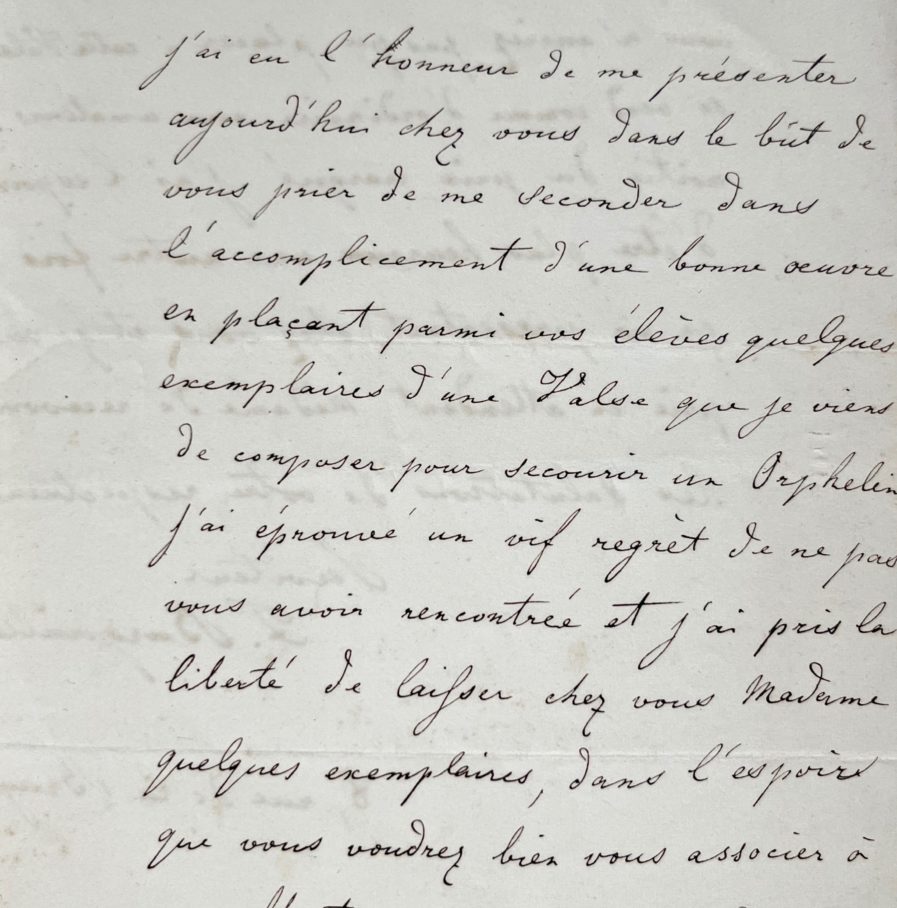 j'ai eu l'honneur de me présenter
aujourd'hui chez vous dans le bût de
vous prier de me seconder dans
l'accomplicement d'une bonne œuvre
en plaçant parmi vos élèves quelques
exemplaires d'une Valse que je viens
de composer pour secourir un Orphelin
j'ai éprouvé un vif regrèt de ne pas
vous avoir rencontrée et j'ai pris la
liberté de laisser chez vous Madame
quelques exemplaires, dans l'espoirs
que vous voudrez bien vous associer à